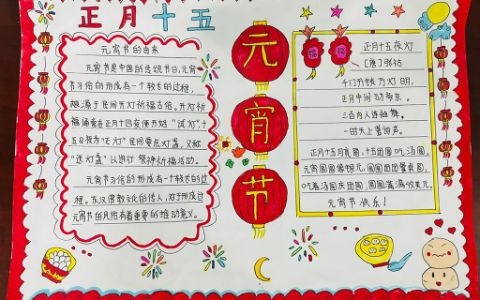 正月十五
元宵节的由来
元宵节是中国的传统节日,元宵
节习俗的形成有一个较长的过程,
根源于民间开灯祈福古俗。开灯祈
福通常在正月十四夜便开始“试灯”,十
五日夜为“正灯”民间要点灯盏,又称
“送灯盏”以进行祭神祈福活动。
元宵节习俗的形成有一个较长的过
程。东汉佛教文化的传入,对于形成
元宵节的民俗有着重要的推动意义。
元
宵
节
正月十五夜灯
[唐]张祜
千门开锁万灯明,
正月中旬动帝京。
三百内人连袖舞,
一时天上著词声。
正月十五月儿圆,十五团圆吃汤圆。
元宵圆圆像银元,圆圆团团聚
吃着汤圆庆团圆,圆圆满满收美元。
元宵节快乐!